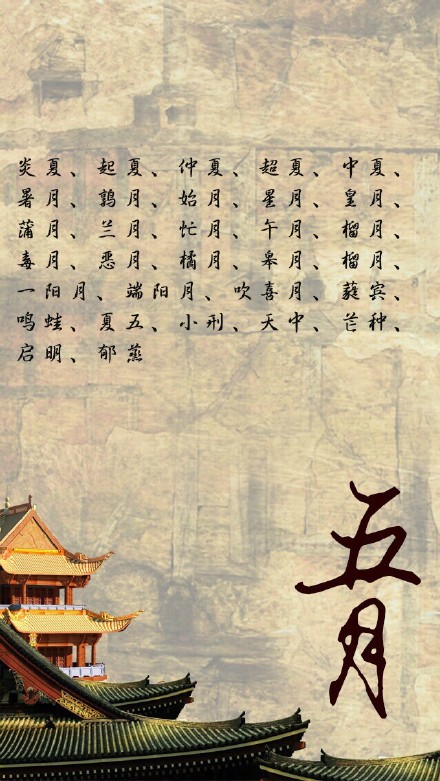 炎夏、起夏、仲夏、超夏、中夏、
暑月、鹑月、始月、星月、皇月、
蒲月、兰月、忙月、午月、榴月、
毒月、恶月、橘月、皋月、榴月、
一阳月、端阳月、吹喜月、蕤宾、
鸣蛙、夏五、小刑、天中、芒种、
启明、郁蒸
五月